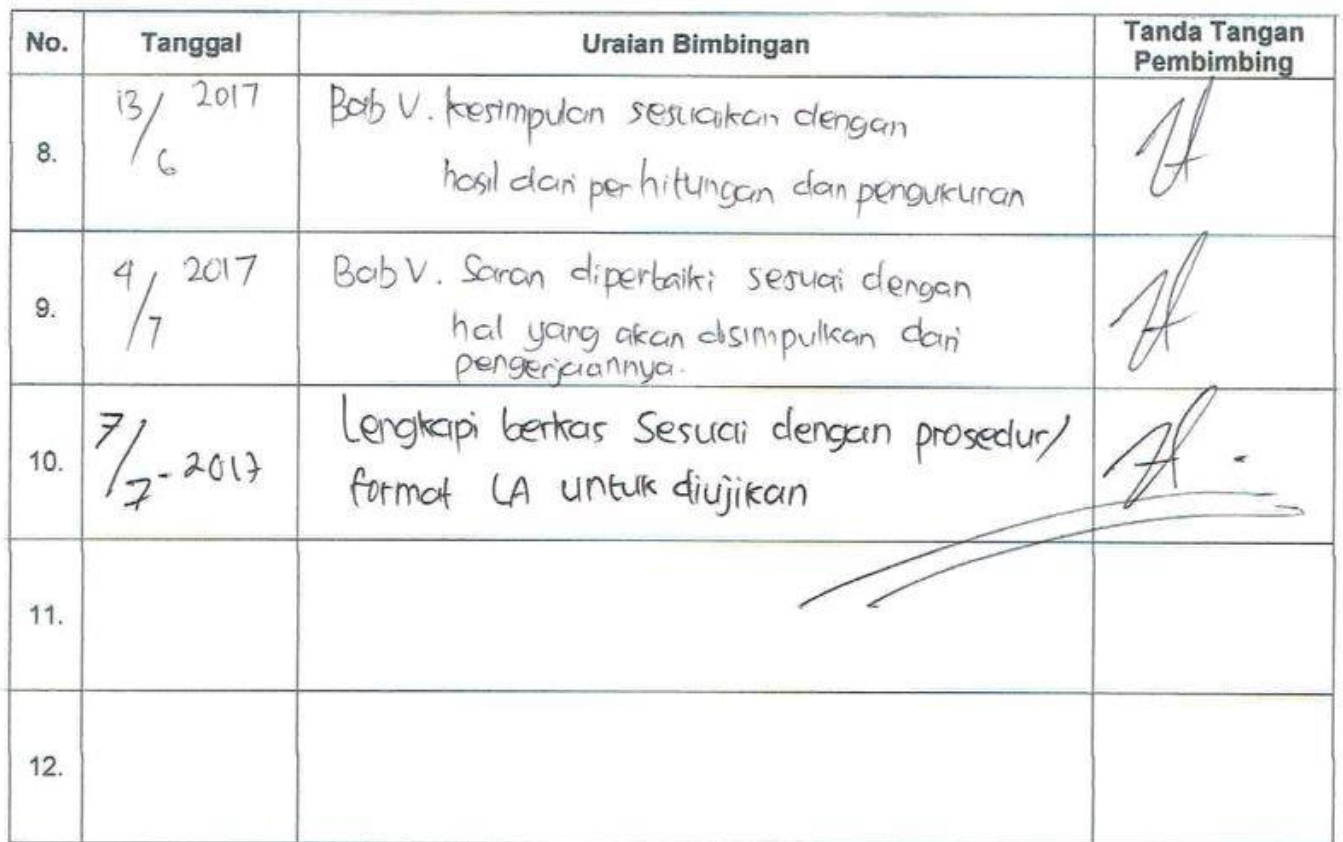 No. Tanggal Uraian Bimbingan Tanda Tangan Pembimbing
8. 13/6 2017 Bab V. Kesimpulan sesuaikan dengan
hasil dari perhitungan dan pengukuran
9. 4/7 2017 Bab V. Saran diperbaiki sesuai dengan
hal yang akan disimpulkan dari
pengerjaannya.
10. 7/7-2017 Lengkapi berkas Sesuai dengan prosedur/
format LA untuk diujikan
11.
12.